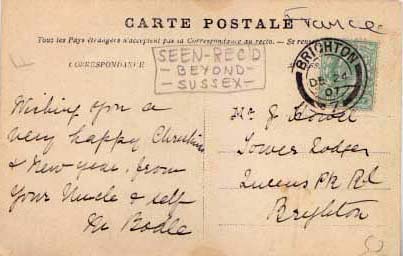 France
CARTE POSTALE
Tous les Pays étrangers n'acceptent pas la Correspondance au recto. — Se rense
CORRESPONDANCE
SEEN-REC'D
- BEYOND -
- SUSSEX -
BRIGHTON
DE 24
07
Wishing you a
very happy Christmas
& New year, from
your Uncle & self
Bodle
Mr J.
Tower Lodge
Queens PK Rd
Brighton